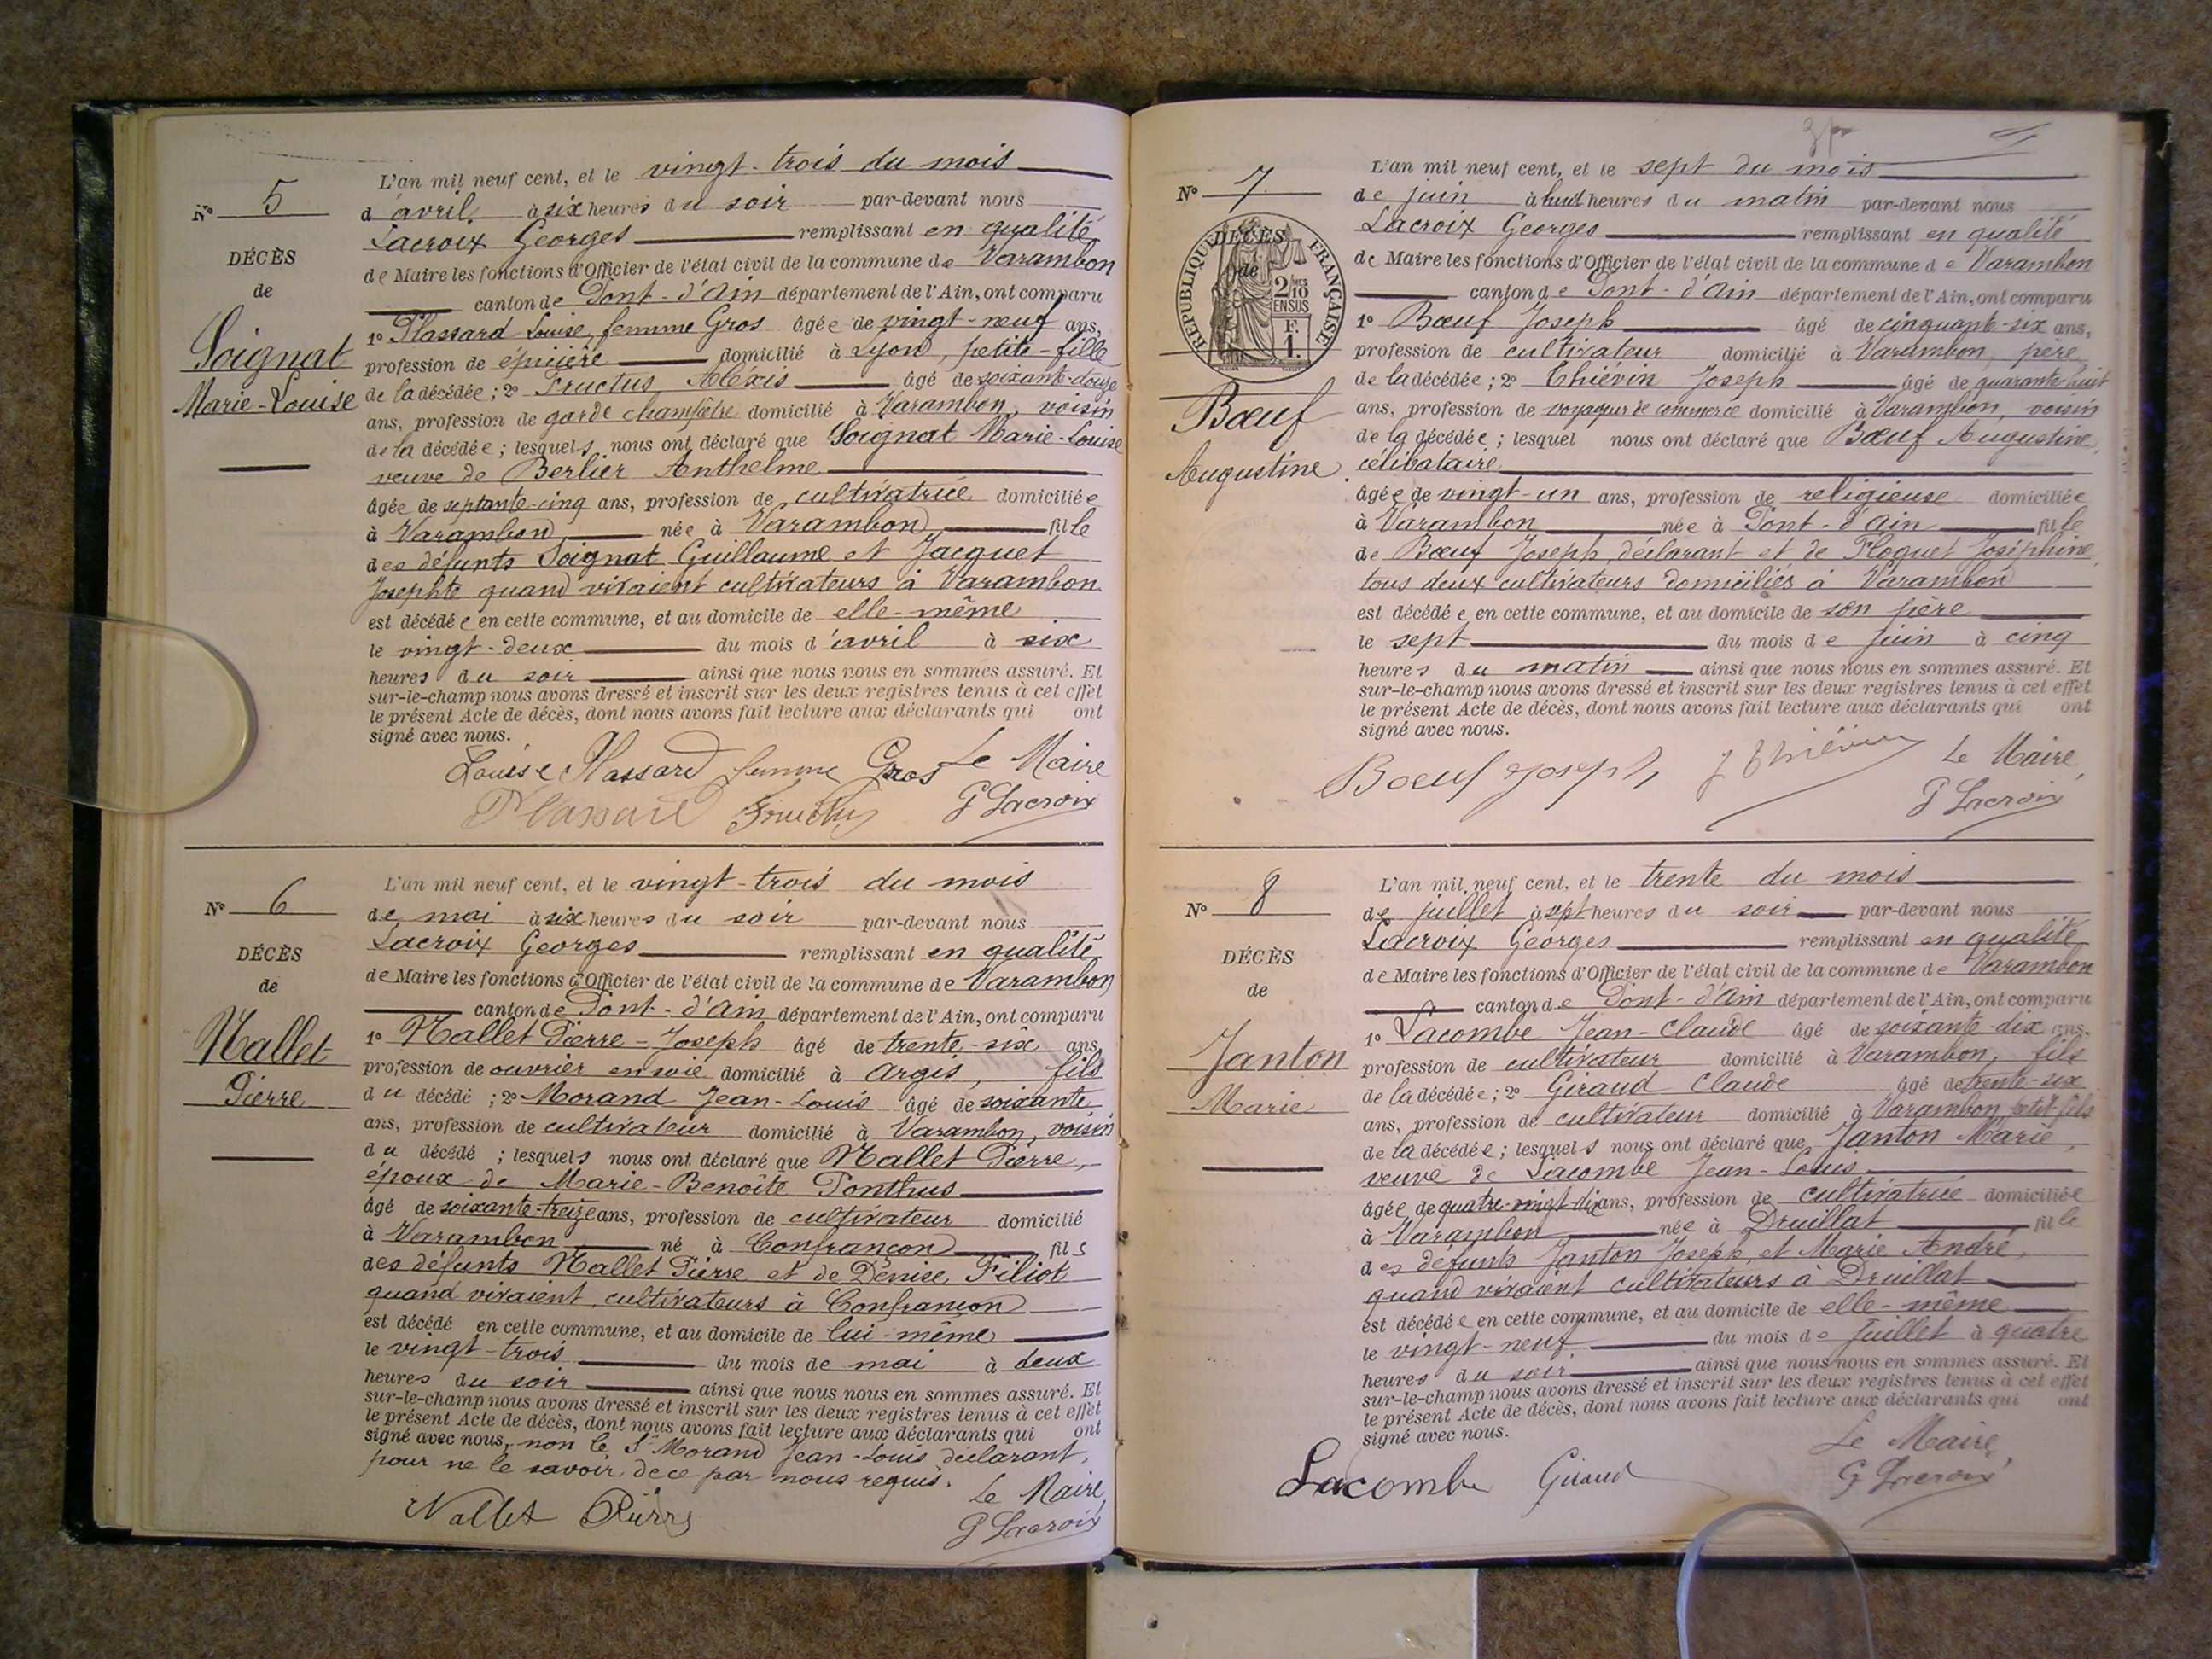 L'an mil neuf cent, et le vingt-trois du mois
N° 5
d'avril à six heures du soir par-devant nous
Lacroix Georges remplissant en qualité
DÉCÈS
de Maire les fonctions d'Officier de l'état civil de la commune de Varambon
de
canton de Pont-d'Ain département de l'Ain, ont comparu
Soignat
1° Plassard Louise, femme Gros âgée de vingt-neuf ans,
profession de épicière domicilié à Lyon, petite-fille
Marie-Louise
de la décédée ; 2° Fructus Aléxis âgé de soixante-douze
ans, profession de garde champêtre domicilié à Varambon, voisin
de la décédée ; lesquels nous ont déclaré que Soignat Marie-Louise
veuve de Berlier Anthelme
âgée de septante-cinq ans, profession de cultivatrice domiciliée
à Varambon née à Varambon fille
des défunts Soignat Guillaume et Jacquet
Josephte quand vivaient cultivateurs à Varambon
est décédée en cette commune, et au domicile de elle-même
le vingt-deux du mois d'avril à six
heures du soir ainsi que nous nous en sommes assuré. Et
sur-le-champ nous avons dressé et inscrit sur les deux registres tenus à cet effet
le présent Acte de décès, dont nous avons fait lecture aux déclarants qui ont
signé avec nous.
Louise Plassard femme Gros Le Maire
Plassard Fructus G Lacroix
L'an mil neuf cent, et le vingt-trois du mois
N° 6
de mai à six heures du soir par-devant nous
Lacroix Georges remplissant en qualité
DÉCÈS
de Maire les fonctions d'Officier de l'état civil de la commune de Varambon
de
canton de Pont-d'Ain département de l'Ain, ont comparu
Nallet
1° Nallet Pierre-Joseph âgé de trente-six ans,
profession de ouvrier en soie domicilié à Argis, fils
Pierre
du décédé ; 2° Morand Jean-Louis âgé de soixante
ans, profession de cultivateur domicilié à Varambon, voisin
du décédé ; lesquels nous ont déclaré que Nallet Pierre,
époux de Marie-Benoîte Ponthus
âgé de soixante-treize ans, profession de cultivateur domicilié
à Varambon né à Confrançon fils
des défunts Nallet Pierre et de Denise Filiot
quand vivaient cultivateurs à Confrançon
est décédé en cette commune, et au domicile de lui-même
le vingt-trois du mois de mai à deux
heures du soir ainsi que nous nous en sommes assuré. Et
sur-le-champ nous avons dressé et inscrit sur les deux registres tenus à cet effet
le présent Acte de décès, dont nous avons fait lecture aux déclarants qui ont
signé avec nous, non le Sr Morand Jean-Louis déclarant,
pour ne le savoir, de ce par nous requis.
Le Maire,
Nallet Pierre G Lacroix
L'an mil neuf cent, et le sept du mois
N° 7
de juin à huit heures du matin par-devant nous
Lacroix Georges remplissant en qualité
RÉPUBLIQUE FRANÇAISE
DÉCÈS
de
2/10 MES
EN SUS
F.
1.
de Maire les fonctions d'Officier de l'état civil de la commune de Varambon
canton de Pont-d'Ain département de l'Ain, ont comparu
1° Bœuf Joseph âgé de cinquante-six ans,
profession de cultivateur domicilié à Varambon, père
de la décédée ; 2° Thiévin Joseph âgé de quarante-huit
Bœuf
ans, profession de voyageur de commerce domicilié à Varambon, voisin
de la décédée ; lesquel nous ont déclaré que Bœuf Augustine,
Augustine
célibataire
âgée de vingt-un ans, profession de religieuse domiciliée
à Varambon née à Pont-d'Ain fille
de Bœuf Joseph, déclarant et de Ploquet Joséphine
tous deux cultivateurs domiciliés à Varambon
est décédée en cette commune, et au domicile de son père
le sept du mois de juin à cinq
heures du matin ainsi que nous nous en sommes assuré. Et
sur-le-champ nous avons dressé et inscrit sur les deux registres tenus à cet effet
le présent Acte de décès, dont nous avons fait lecture aux déclarants qui ont
signé avec nous.
Bœuf Joseph J Thiévin Le Maire,
G Lacroix
L'an mil neuf cent, et le trente du mois
N° 8
de juillet à sept heures du soir par-devant nous
Lacroix Georges remplissant en qualité
DÉCÈS
de Maire les fonctions d'Officier de l'état civil de la commune de Varambon
de
canton de Pont-d'Ain département de l'Ain, ont comparu
Janton
1° Lacombe Jean-Claude âgé de soixante-dix ans,
profession de cultivateur domicilié à Varambon, fils
Marie
de la décédée ; 2° Giraud Claude âgé de trente-six
ans, profession de cultivateur domicilié à Varambon, petit-fils
de la décédée ; lesquels nous ont déclaré que Janton Marie,
veuve de Lacombe Jean-Louis
âgée de quatre-vingt-dix ans, profession de cultivatrice domiciliée
à Varambon née à Druillat fille
des défunts Janton Joseph et Marie André,
quand vivaient cultivateurs à Druillat
est décédée en cette commune, et au domicile de elle-même
le vingt-neuf du mois de Juillet à quatre
heures du soir ainsi que nous nous en sommes assuré. Et
sur-le-champ nous avons dressé et inscrit sur les deux registres tenus à cet effet
le présent Acte de décès, dont nous avons fait lecture aux déclarants qui ont
signé avec nous.
Le Maire,
Lacombe Giraud G Lacroix